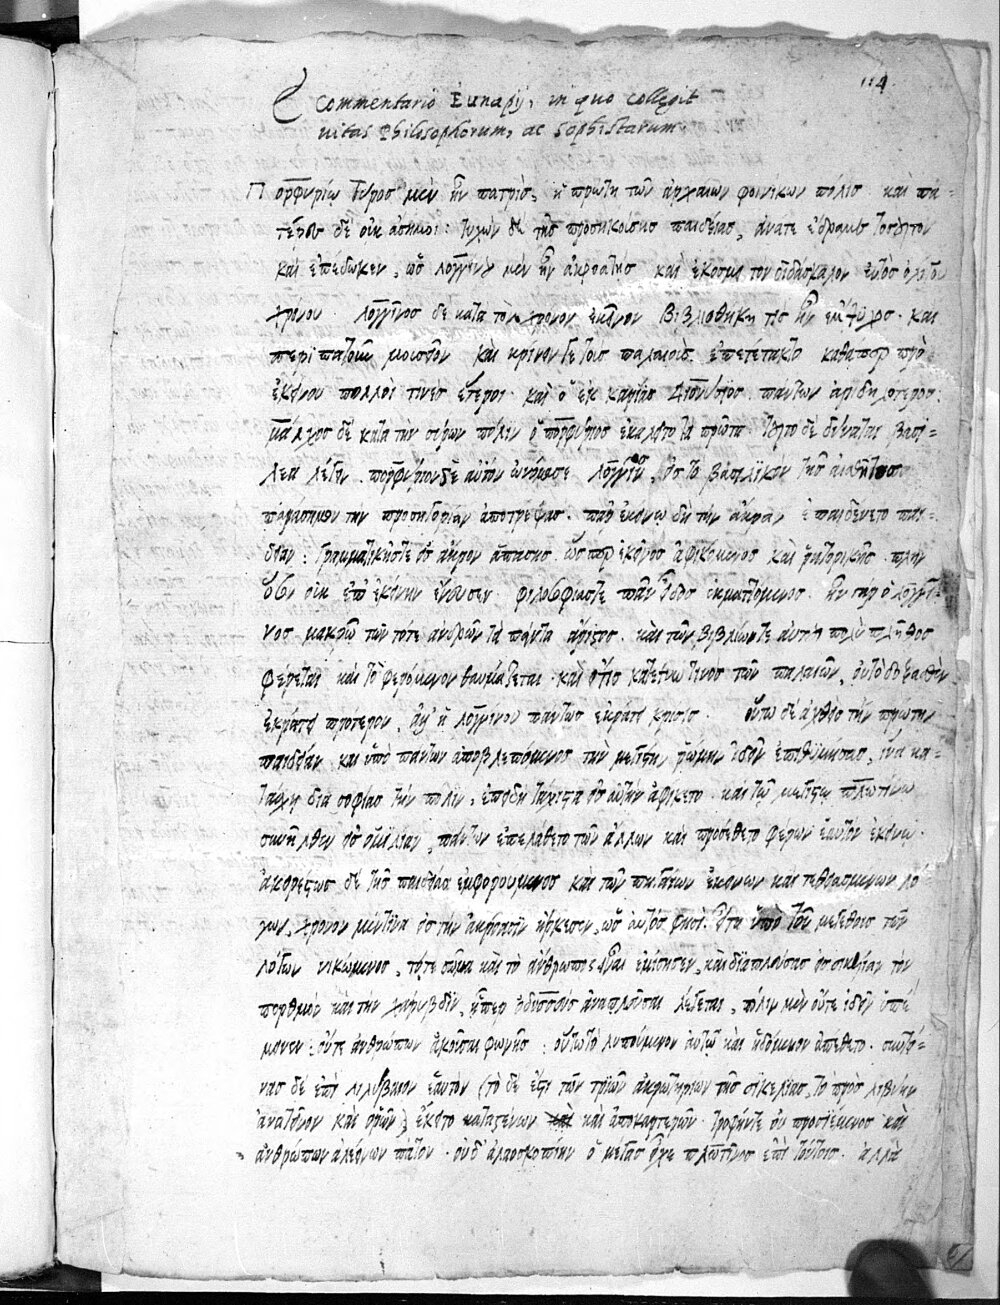 114
E Commentario Eunapij, in quo collegit
uitas Philosophorum, ac Sophistarum
Πορφυρίῳ Τύρος μὲν ἦν πατρὶς, ἡ πρώτη τῶν ἀρχαίων φοινίκων πόλις καὶ πα-
τέρες δὲ οὐκ ἄσημοι· τυχὼν δὲ τῆς προσηκούσης παιδείας, ἀνά τε ἔδραμε τοσοῦτον
καὶ ἐπέδωκεν, ὡς λογγίνου μὲν ἦν ἀκροατὴς καὶ ἐκόσμει τὸν διδάσκαλον ἐντὸς ὀλίγου
χρόνου. λογγῖνος δὲ κατὰ τὸν χρόνον ἐκεῖνον βιβλιοθήκη τις ἦν ἔμψυχος καὶ
περιπατοῦν μουσεῖον καὶ κρίνειν γε τοὺς παλαιοὺς ἐπετέτακτο καθάπερ πρὸ
ἐκείνου πολλοί τινες ἕτεροι καὶ ὁ ἐκ καρίας Διονύσιος πάντων ἀριδηλότερος.
μάλχος δὲ κατὰ τὴν σύρων πόλιν ὁ πορφύριος ἐκαλεῖτο τὰ πρῶτα τοῦτο δὲ δύναται βασι-
λέα λέγειν. πορφύριον δὲ αὐτὸν ὠνόμασε λογγῖνος, ἐς τὸ βασιλικὸν τῆς ἐσθῆτος
παράσημον τὴν προσηγορίαν ἀποτρέψας. παρ' ἐκείνῳ δὴ τὴν ἄκραν ἐπαιδεύετο παι-
δείαν· γραμματικῆς τε εἰς ἄκρον ἁπάσης ὥσπερ ἐκεῖνος ἀφικόμενος καὶ ῥητορικῆς πλὴν
ὅσον οὐκ ἐπ' ἐκείνην ἔνευσεν φιλοσοφίας τε πᾶν εἶδος ἐκματτόμενος. ἦν γὰρ ὁ λογγῖ-
νος μακρῷ τῶν τότε ἀνδρῶν τὰ πάντα ἄριστος. καὶ τῶν βιβλίων τε αὐτοῦ πολὺ πλῆθος
φέρεται καὶ τὸ φερόμενον θαυμάζεται καὶ εἴ τις κατέγνω τινος τῶν παλαιῶν, οὐ τὸ δοξασθὲν
ἐκράτει πρότερον, ἀλλ' ἡ λογγίνου πάντως ἐκράτει κρίσις. οὕτω δὲ ἀχθεὶς τὴν πρώτην
παιδείαν καὶ ὑπὸ πάντων ἀποβλεπόμενος τὴν μεγίστην ῥώμην ἰδεῖν ἐπιθυμήσας, ἵνα κα-
τάσχῃ διὰ σοφίας τὴν πόλιν, ἐπειδὴ τάχιστα εἰς αὐτὴν ἀφίκετο καὶ τῷ μεγίστῳ πλωτίνῳ
συνῆλθεν εἰς ὁμιλίαν, πάντων ἐπελάθετο τῶν ἄλλων καὶ προσέθετο φέρων ἑαυτὸν ἐκείνῳ.
ἀκορέστως δὲ τῆς παιδείας ἐμφορούμενος καὶ τῶν πηγαίων ἐκείνων καὶ τεθειασμένων λό-
γων, χρόνον μέν τινα εἰς τὴν ἀκρόασιν ἤρκεσεν, ὡς αὐτός φησί. εἶτα ὑπὸ τοῦ μεγέθους τῶν
λόγων νικώμενος, τό τε σῶμα καὶ τὸ ἄνθρωπος εἶναι ἐμίσησεν, καὶ διαπλεύσας εἰς σικελίαν τὸν
πορθμὸν καὶ τὴν χάρυβδιν, ᾗπερ ὀδυσσεὺς ἀναπλεῦσαι λέγεται, πόλιν μὲν οὔτε ἰδεῖν ὑπέ-
μεινεν· οὔτε ἀνθρώπων ἀκοῦσαι φωνῆς· οὕτω τὸ λυπούμενον αὐτῷ καὶ ἡδόμενον ἀπέθετο. συντεί-
νας δὲ ἐπὶ λιλύβαιον ἑαυτὸν (τὸ δέ ἐστι τῶν τριῶν ἀκρωτηρίων τῆς σικελίας, τὸ πρὸς λιβύην
ἀνατεῖνον καὶ ὁρῶν) ἔκειτο καταστένων καὶ ἀποκαρτερῶν· τροφήν τε οὐ προσιέμενος καὶ
ἀνθρώπων ἀλεείνων πάτον. οὐδ' ἀλαοσκοπίην ὁ μέγας εἶχε πλωτῖνος ἐπὶ τούτοις. ἀλλὰ